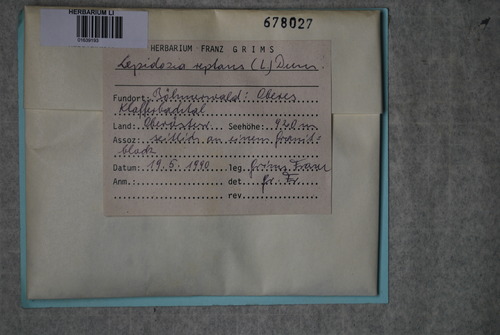 HERBARIUM LI
678027
HERBARIUM FRANZ GRIMS
Lepidozia reptans (L.) Dum.
Fundort: Böhmerwald: Oberes
Klafferbachtal
Land: Oberösterr. Seehöhe: 920 m
Assoz: seitlich an einem Granit-
block
Datum: 19.5.1990 leg. Grims Franz
Anm.: det. Gr. Fr.
rev.